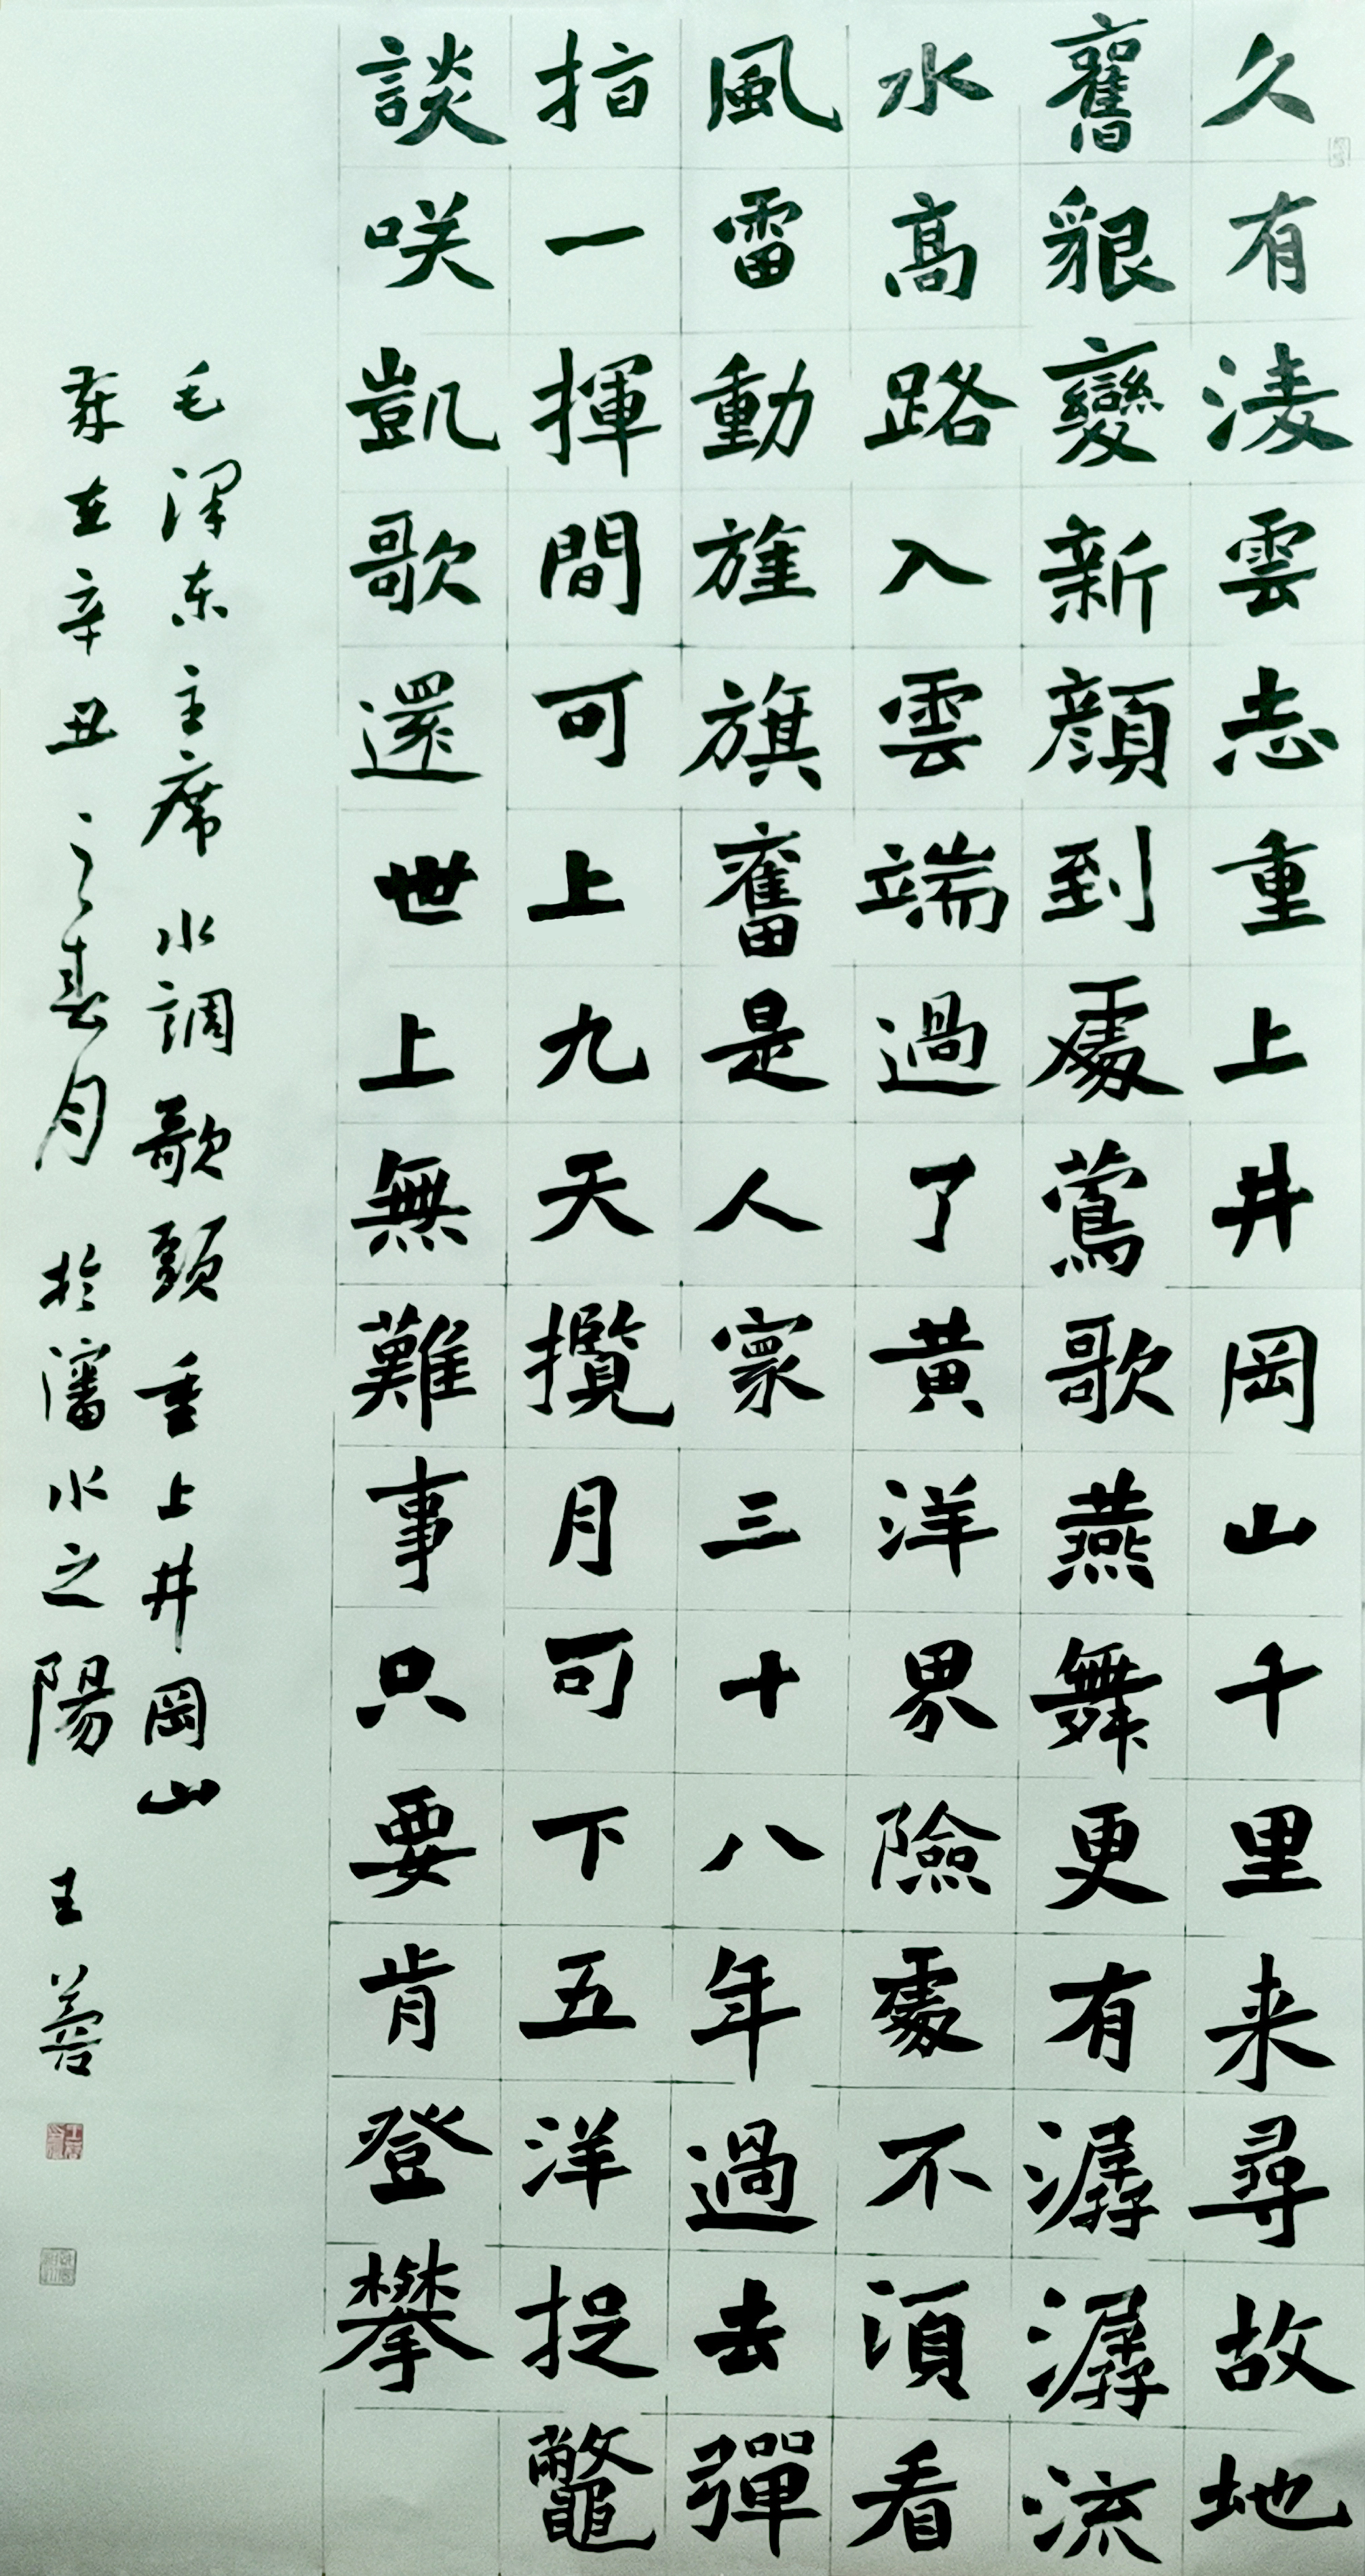 久有淩雲志重上井岡山千里来尋故地
舊貌變新顏到處鶯歌燕舞更有潺潺流
水高路入雲端過了黃洋界險處不須看
風雷動旌旗奮是人寰三十八年過去彈
指一揮間可上九天攬月可下五洋捉鱉
談咲凱歌還世上無難事只要肯登攀
毛澤东主席水調歌頭重上井岡山
歲在辛丑之春月於瀋水之陽 王